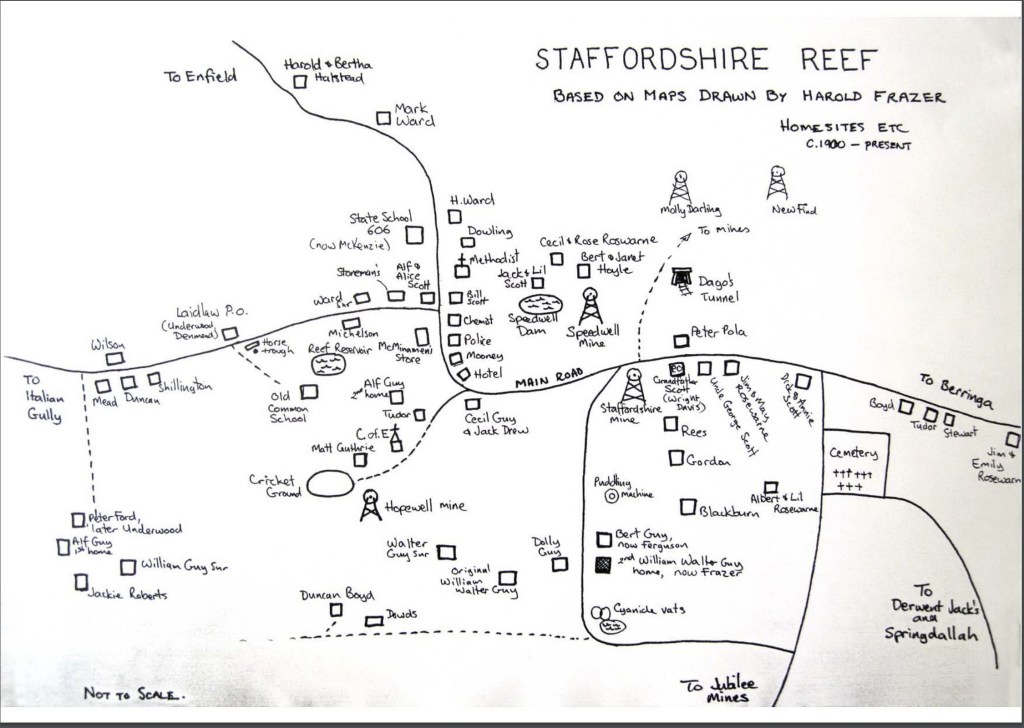 STAFFORDSHIRE REEF
BASED ON MAPS DRAWN BY HAROLD FRAZER
HOMESITES ETC
C.1900 – PRESENT
To Enfield
Harold & Bertha
Halstead
Mark
Ward
H. Ward
Dowling
State School
606
(now McKenzie)
Methodist
Storeman's
Alf &
Alice
Scott
Ward Snr
Bill
Scott
Chemist
Police
Mooney
Hotel
Michelson
McMinamen
Store
Reef Reservoir
Laidlaw P.O.
(Underwood
Denmead)
Horse
trough
Wilson
To
Italian
Gully
Mead
Duncan
Skillington
Old
Common
School
Alf Guy
2nd home
Tudor
C of E
Matt Guthrie
Cricket
Ground
Hopewell mine
Cecil Guy
& Jack Drew
MAIN ROAD
Cecil & Rose Roswarne
Bert & Janet
Hoyle
Jack & Lil
Scott
Speedwell
Dam
Speedwell
Mine
Molly Darling
New Find
To mines
Dago's
Tunnel
Peter Pola
PO
Grandfather
Scott
(Wright
Davis)
Uncle George Scott
Jim & May
Rosewarne
Dick & Annie
Scott
Staffordshire
Mine
Rees
Gordon
Puddling
machine
Blackburn
Albert & Lil
Rosewarne
Cemetery
To Berringa
Boyd
Tudor
Stewart
Jim &
Emily
Rosewarn
Bert Guy,
now Ferguson
2nd William Walter Guy
home, now Frazer
Cyanide vats
Dolly
Guy
Walter
Guy Snr
Original
William
Walter Guy
Duncan Boyd
Dowds
Peter Ford,
later Underwood
Alf Guy
1st home
William Guy Snr
Jackie Roberts
To
Derwent Jack's
and
Springdallah
To Jubilee
Mines
NOT TO SCALE.